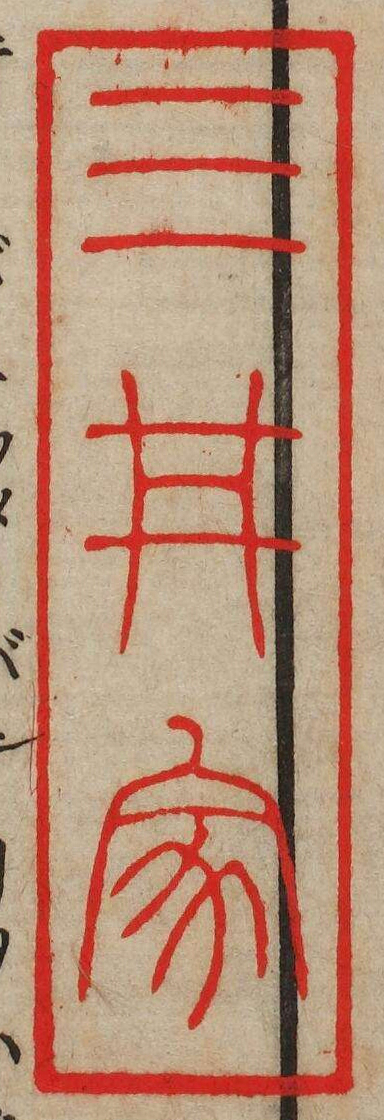 三井家